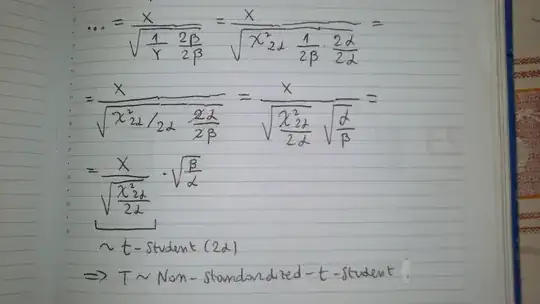 ... = X / √(1/Y 2β/2β) = X / √(χ²2α 1/2β · 2α/2α) =
= X / √(χ²2α/2α 2α/2β) = X / (√(χ²2α/2α) √(α/β)) =
= X / √(χ²2α/2α) · √(β/α)
~ t-student (2α)
⇒ T ~ Non-standardized-t-student